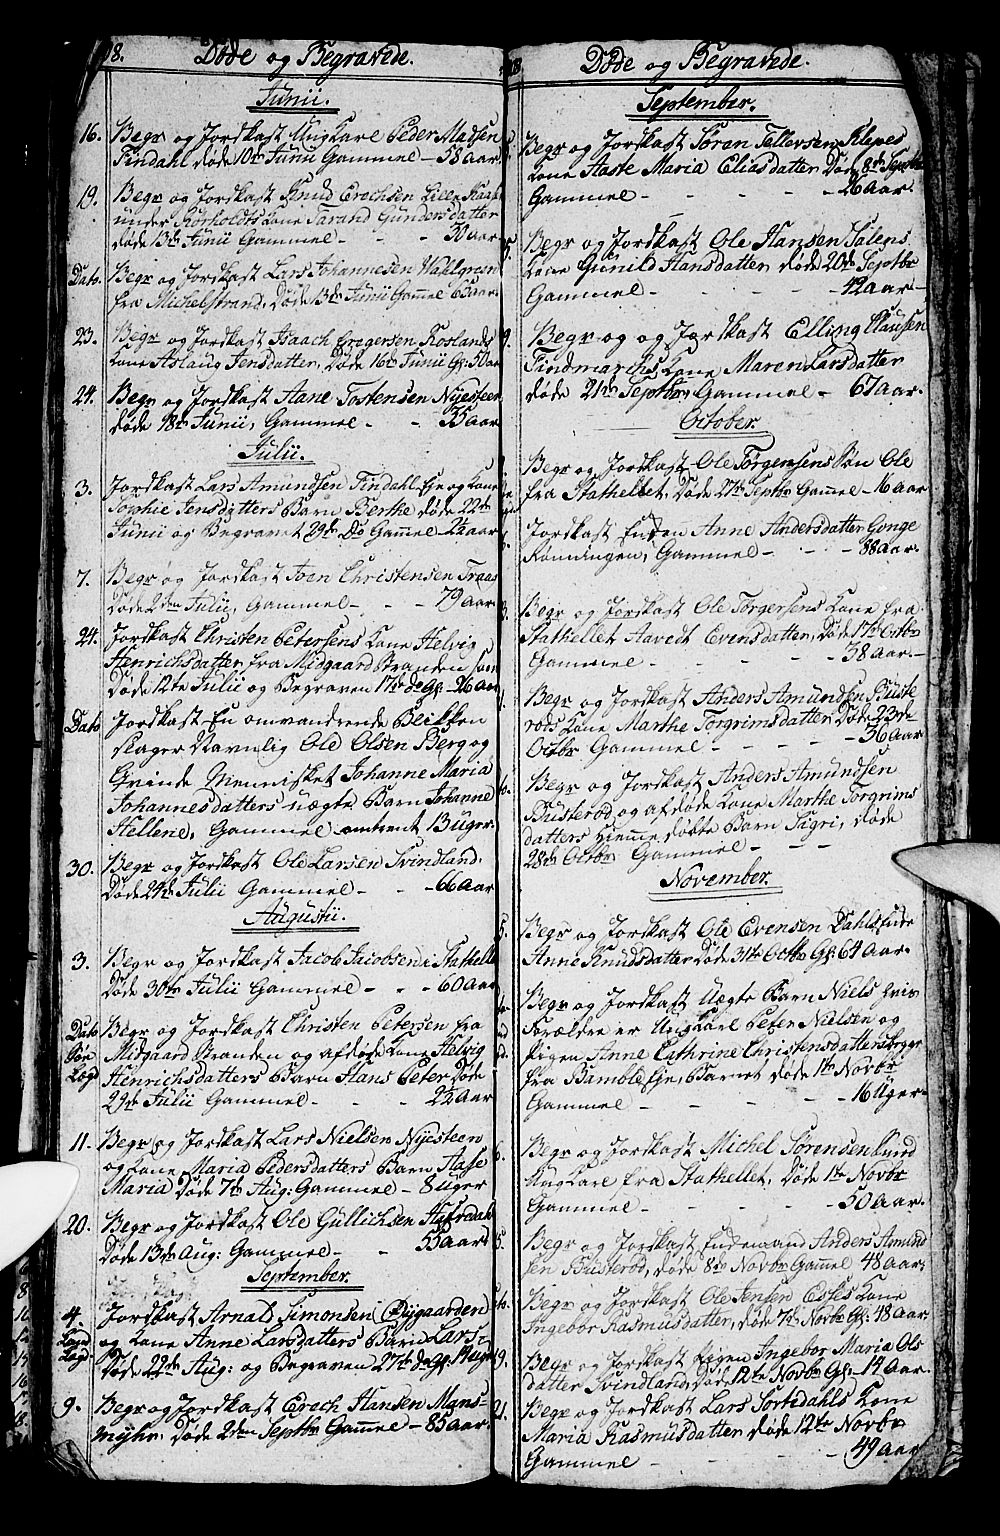 8. Døde og Begravede.
Junii.
16. Begr og Jordkast Ungkarl Peder Madsen
Findahl døde 10de Junii Gammel - 58 Aar
19. Begr og Jordkast Knud Erechsen Lille
under Kone Tarand Gundersdatter
døde 13de Junii Gammel - - - 30 Aar
Dato. Begr og Jordkast Lars Johannesen
fra Michelstrand, Døde 13de Junii Gamel 65 Aar.
23. Begr og Jordkast Isaach Gregersen Roslands
Kone Aslaug Jensdatter, Døde 16de Junii Gl: 50 Aar
24. Begr og Jordkast Aane Tostensen Nyesteen
døde 18de Junii, Gammel - - 35 Aar
Julii.
3. Jordkast Lars Amundsen Findahl Eje og Kone
Sophie Jensdatters Barn Berthe døde 22de
Junii og Begravet 29de Do Gamel - 2½ Aar
7. Begr og Jordkast Joen Christensen Traas
Døde 2den Julii, Gammel - - - 79 Aar
24. Jordkast Christen Petersens Kone Helvig
Henrichsdatter fra Midgaard Stranden som
Døde 12te Julii og Begraven 17de do Gl: - 26 Aar
Dato Jordkast En omvandrende Blikken
slager Navnlig Ole Olsen Berg og
Qvinde Mennisket Johanne Maria
Johannesdatters uægte Barn Johanne
Hellene, Gammel omtrent 13 Uger.
30. Begr og Jordkast Ole Larsen Svindland.
Døde 24de Julii Gammel - - 66 Aar
Augustii.
3. Begr og Jordkast Jacob Jacobsen i Stathelle
Døde 30te Julii Gammel - - - 60 Aar
Dato Begr og Jordkast Christen Petersen fra
Midgaard Stranden og afdøde Kone Helvig
Henrichsdatters Barn Hans Peter Døde
29de Julii Gammel - - - 2½ Aar
11. Begr og Jordkast Lars Nielsen Nyesteen
og Kone Maria Pedersdatters Barn Aase
Maria Døde 7de Aug: Gammel - 8 Uger
20. Begr og Jordkast Ole Gullichsen Hafredal
Døde 13de Aug: Gammel - - 55 Aar
September.
4. Jordkast Arnat Simonsen (Dygaarden)
og Kone Anne Larsdatters Barn Lars
Døde 22de Aug: og Begraven 27de do Gl: 14 Uger
9. Begr og Jordkast Erech Hansen Mans-
myhr, Døde 2den Septbr Gamel - 85 Aar
Døde og Begravede.
September.
Begr og Jordkast Søren Tellevsen Klepes
Kone Aaste Maria Eliasdatter Døde 8de Septbr
Gammel - - - - 26 Aar
Begr og Jordkast Ole Hansen
Kone Gunild Hansdatter døde 20de Septbr
Gammel - - - - 42 Aar -
9. Begr og og Jordkast Elling Clausen
Findmarchs Kone Maren Larsdatter
døde 21de Septbr Gammel - 67 Aar.
October.
Begr og Jordkast Ole Torgersens Søn Ole
fra Stathellet, Døde 27de Septbr Gamel - 16 Aar
Jordkast Enken Anne Andersdatter Gonge
Rønningen, Gammel - - - 88 Aar.
Begr og Jordkast Ole Torgersens Kone fra
Stathellet Aavedt Evensdatter, Døde 17de Octbr
Gammel - - - - 38 Aar -
Begr og Jordkast Anders Amundsen Buste
røds Kone Marthe Torgrimsdatter Døde 23de
Octbr Gammel - - - - 36 Aar
Begr og Jordkast Anders Amundsen
Busterød og afdøde Kone Marthe Torgrims
datters Hjemme døbte Barn Sigri, døde
28de Octbr Gammel - - -
November.
5. Begr og Jordkast Ole Evensen Dahls Enke
Anne Knudsdatter Døde 31te Octbr Gl: 64 Aar.
Begr og Jordkast Uægte Barn Niels hvis
Forældre er Ungkarl Peter Nielsen og
Pigen Anne Cathrine Christensdatter begge
fra Bamble Eje, Barnet døde 1te Novbr
Gammel - - - - 16 Uger
6. Begr og Jordkast Michel Sørensen Lund
Ungkarl fra Stathellet, Døde 1te Novbr
Gammel - - - - 50 Aar.
5. Begr og Jordkast Enkemand Anders Amund
sen Busterød, døde 8de Novbr Gamel 48 Aar.
Begr og Jordkast Ole Jensen Kone
Ingebor Rasmusdatter, døde 7de Novbr Gl: 48 Aar.
19. Begr og Jordkast Pigen Ingebor Maria Ols
datter Svindland, døde 12te Novbr Gl: - 14 Aar.
21. Begr og Jordkast Lars Sortedahls Kone
Maria Rasmusdatter døde 12te Novbr
Gammel - - - - 49 Aar